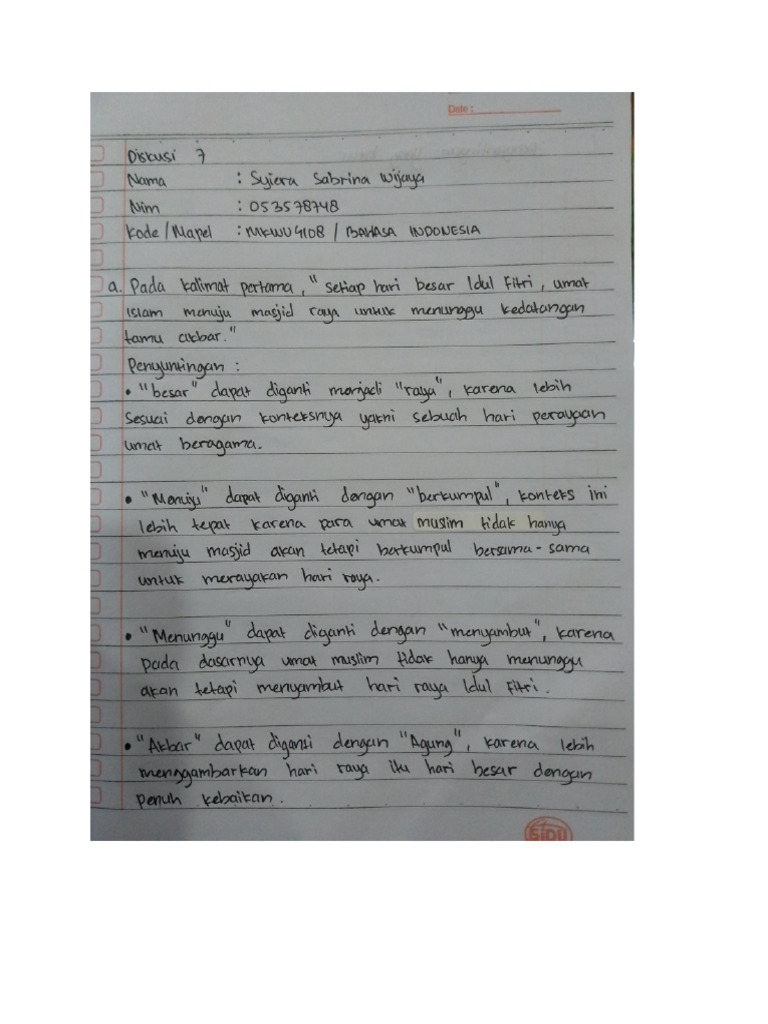 Date :
Diskusi 7
Nama : Syiera Sabrina Wijaya
Nim : 053578748
Kode / Mapel : MKWU4108 / BAHASA INDONESIA
a. Pada kalimat pertama, " setiap hari besar Idul Fitri, umat
islam menuju masjid raya untuk menunggu kedatangan
tamu akbar."
Penyuntingan :
• "besar" dapat diganti menjadi "raya", karena lebih
sesuai dengan konteksnya yakni sebuah hari perayaan
umat beragama.
• "Menuju" dapat diganti dengan "berkumpul", konteks ini
lebih tepat karena para umat muslim tidak hanya
menuju masjid akan tetapi berkumpul bersama-sama
untuk merayakan hari raya.
• "Menunggu" dapat diganti dengan "menyambut", karena
pada dasarnya umat muslim tidak hanya menunggu
akan tetapi menyambut hari raya Idul Fitri.
• "Akbar" dapat diganti dengan "Agung", karena lebih
menggambarkan hari raya itu hari besar dengan
penuh kebaikan.
SIDU